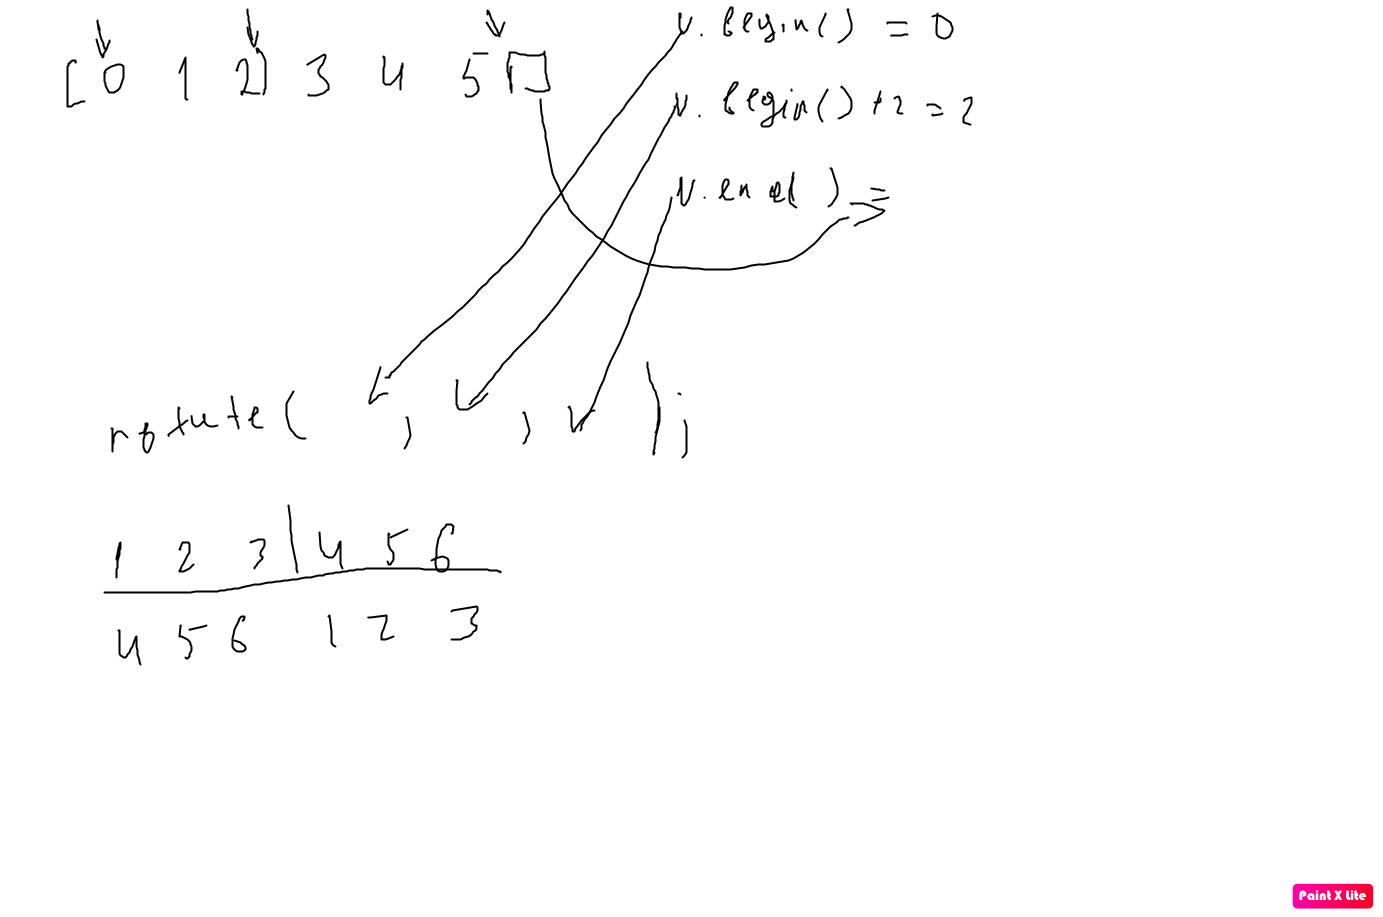 [ 0 1 2] 3 4 5
v. begin() = 0
v. begin() +2 = 2
v. end( ) =
rotate( , , );
1 2 3 | 4 5 6
4 5 6 1 2 3
Paint X Lite